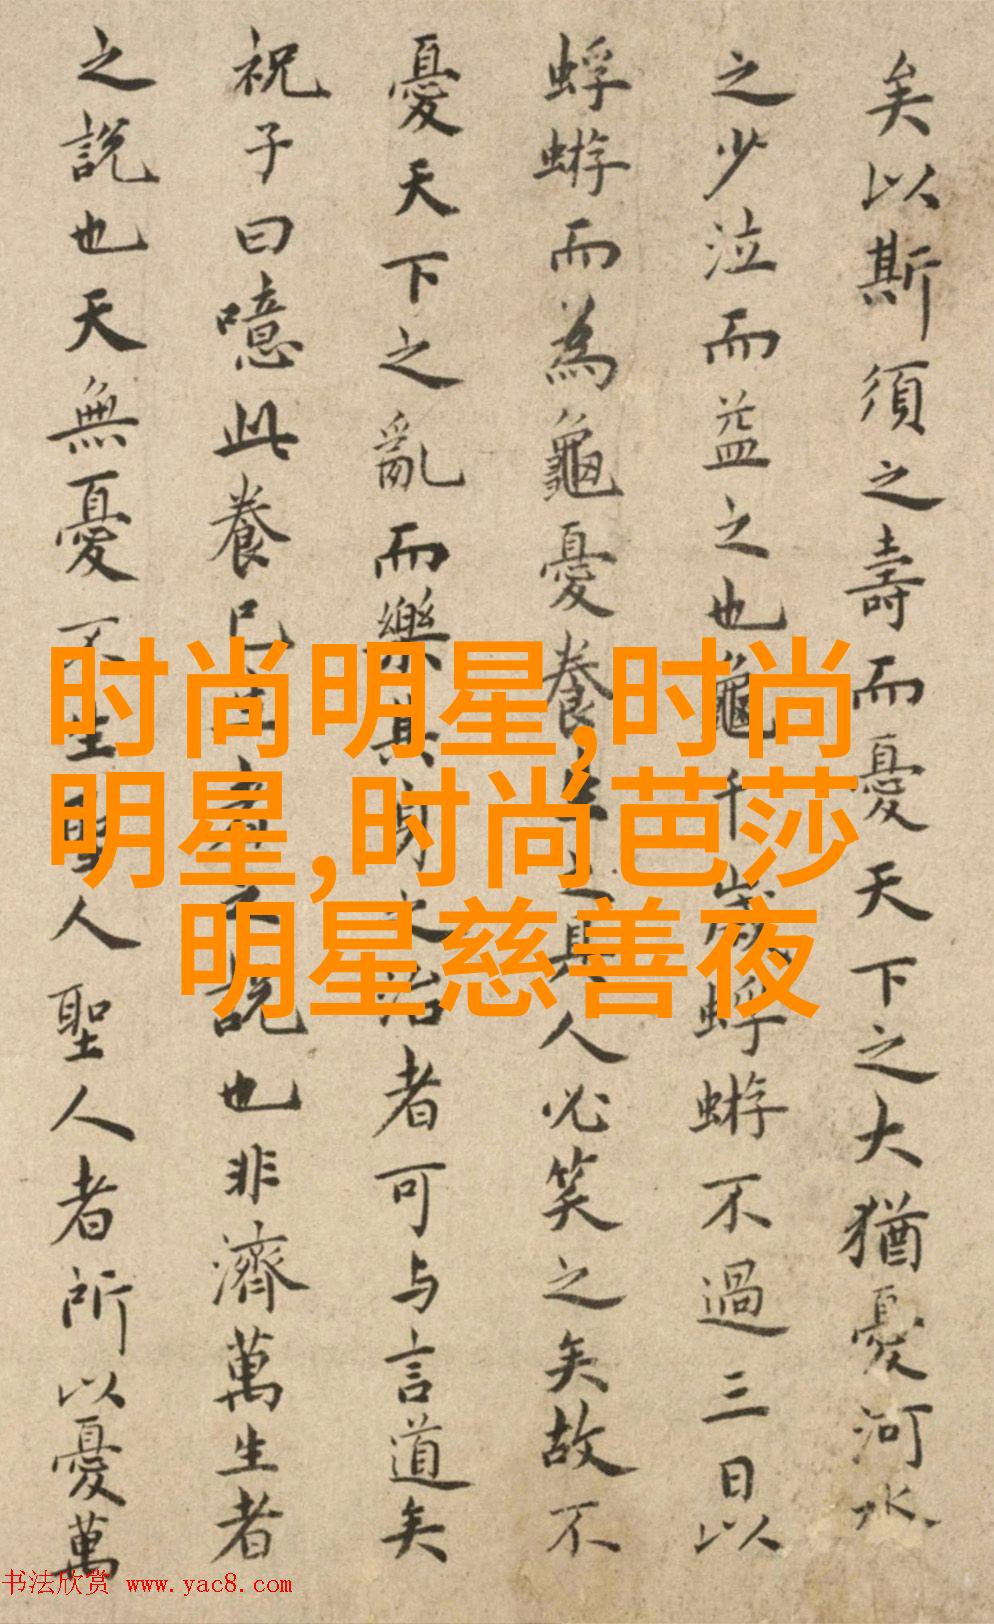 矣以斯須之壽而憂天下之大猶憂河水
之少泣而益之也龜千歲蜉蝣不過三日以
蜉蝣而為龜憂養生之具人必笑之矣故不
憂天下之亂而樂其身之治者可与言道矣
祝子曰噫此養己者之說也非濟萬生者
之說也天無憂不生聖人聖人者所以憂萬
时尚明星,时尚
明星,时尚芭莎
明星慈善夜
书法欣赏 www.yac8.com